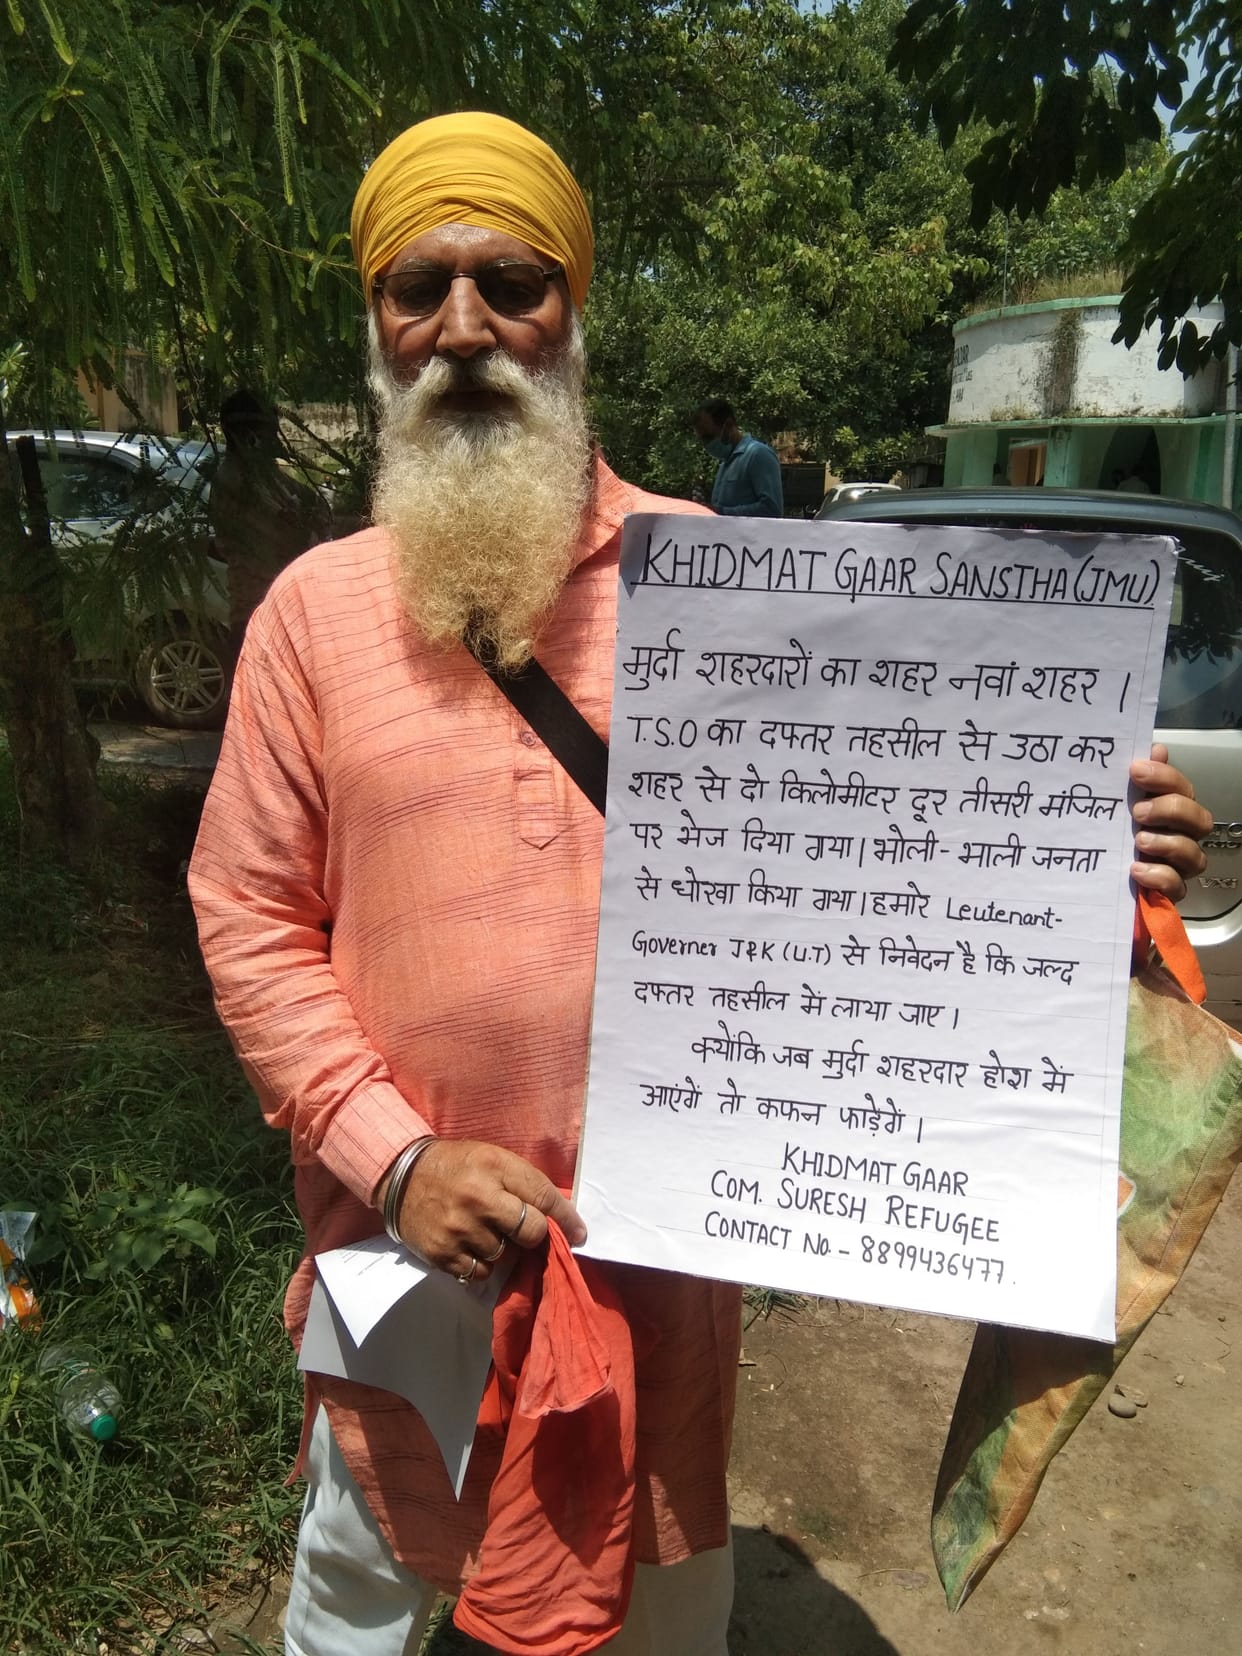 KHIDMAT GAAR SANSTHA (JMU)
मुर्दा शहरदारों का शहर नवां शहर ।
T.S.O का दफ्तर तहसील से उठा कर
शहर से दो किलोमीटर दूर तीसरी मंजिल
पर भेज दिया गया। भोली-भाली जनता
से धोखा किया गया। हमारे Leutenant-
Governer J&K (U.T) से निवेदन है कि जल्द
दफ्तर तहसील में लाया जाए ।
क्योंकि जब मुर्दा शहरदार होश में
आएंगें तो कफन फाड़ेंगें ।
KHIDMAT GAAR
COM. SURESH REFUGEE
CONTACT NO. - 8899436477.
VXi